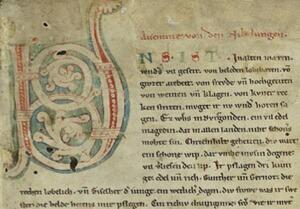 Auenture von den Nibelungen.
NS. IST. In alten mæren.
wndˢs vil geseit. von heleden lobebæren. võ
grozer arbeit. von frevde vñ hochgeciten
von weinen vñ klagen. von kvner rec
ken striten. mvget ir nv wnd horen sa
gen. Ez whs in Bvrgonden. ein vil edel
magedin. daz in allen landen. niht schoͤns
mohte sin. Chriemhilt geheizen. div wart
ein schone wip. dar vmbe mvsin degene
vil verliesen den lip. Ir pflagen dri kuni
ge edel vñ rich. Gunther vñ Gernot. die
rechen lobelich. vñ Giselher d' iunge. ein wetlich degn. div frowe was ir swe
ster die helde hetens inir pflegen. Ein richiv chuniginne